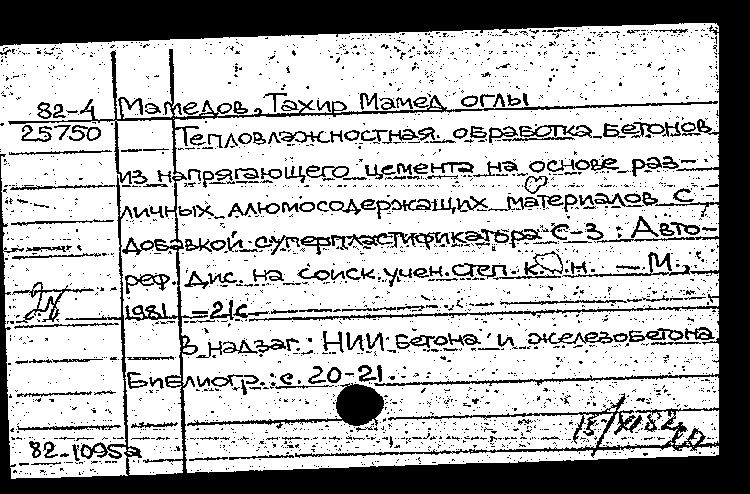 82-4 Мамедов, Тахир Мамед оглы
25750 Тепловлажностная обработка бетонов
из напрягающего цемента на основе раз-
личных алюмосодержащих материалов с
добавкой суперпластификатора С-3 : Авто-
реф. Дис. на соиск. учен. степ. к. т. н. — М.,
1981. — 21 с.
В надзаг.: НИИ бетона и железобетона
Библиогр.: с. 20-21.
82-10952